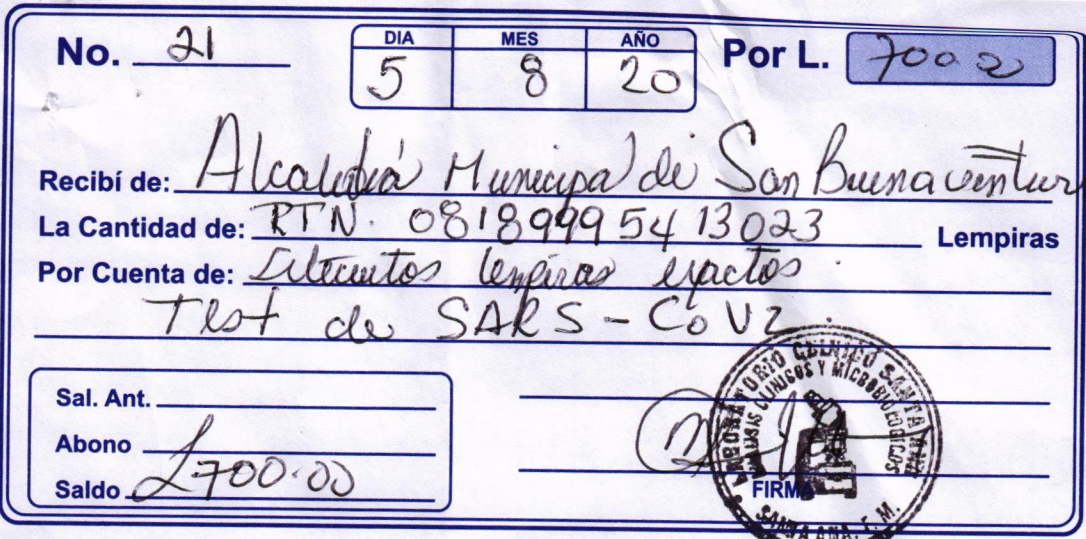 No. 21 DIA MES AÑO Por L. 700.00
5 8 20
Recibí de: Alcaldia Municipal de San Buenaventura
La Cantidad de: RTN. 08189995413023 Lempiras
Por Cuenta de: Setecientos lempiras exactos.
Test de SARS-CoV2.
Sal. Ant.
Abono
Saldo L700.00
FIRMA
LABORATORIO CLINICO SANTA ANA
ANALISIS CLINICOS Y MICROBIOLOGICOS
SANTA ANA, F. M.